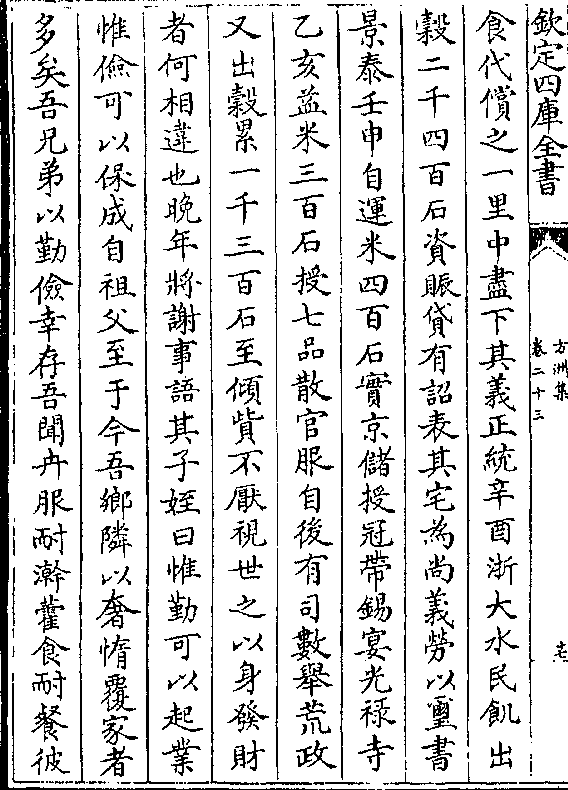 欽定四庫全書
方洲集
卷二十三
食代償之一里中盡下其義正統辛酉浙大水民飢出
穀二千四百石資賑貸有詔表其宅為尚義勞以璽書
景泰壬申自運米四百石實京儲授冠帶錫宴光禄寺
乙亥益米三百石授七品散官服自後有司數舉荒政
又出穀累一千三百石至傾貲不厭視世之以身發財
者何相違也晚年將謝事語其子姪曰惟勤可以起業
惟儉可以保成自祖父至于今吾鄉隣以奢惰覆家者
多矣吾兄弟以勤儉幸存吾聞卉服耐澣藿食耐餐彼